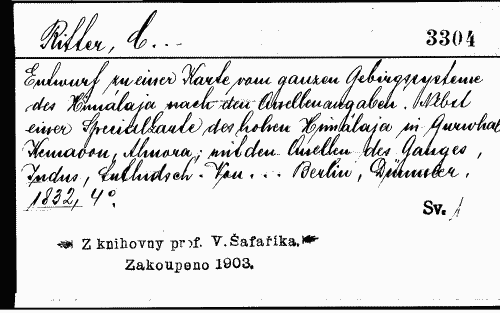 Ritter, C...
3304
Entwurf zu einer Karte vom ganzen Gebirgssysteme
des Himálaja nach den Quellenangaben. Nebst
einer Specialkarte des hohen Himálaja in Gurwhal
Kemaoon, Almora, mit den Quellen des Ganges,
Indus, Sutludsch. Von... Berlin, Dümmler.
1832, 4°.
Sv. 1
Z knihovny prof. V. Šafaříka.
Zakoupeno 1903.